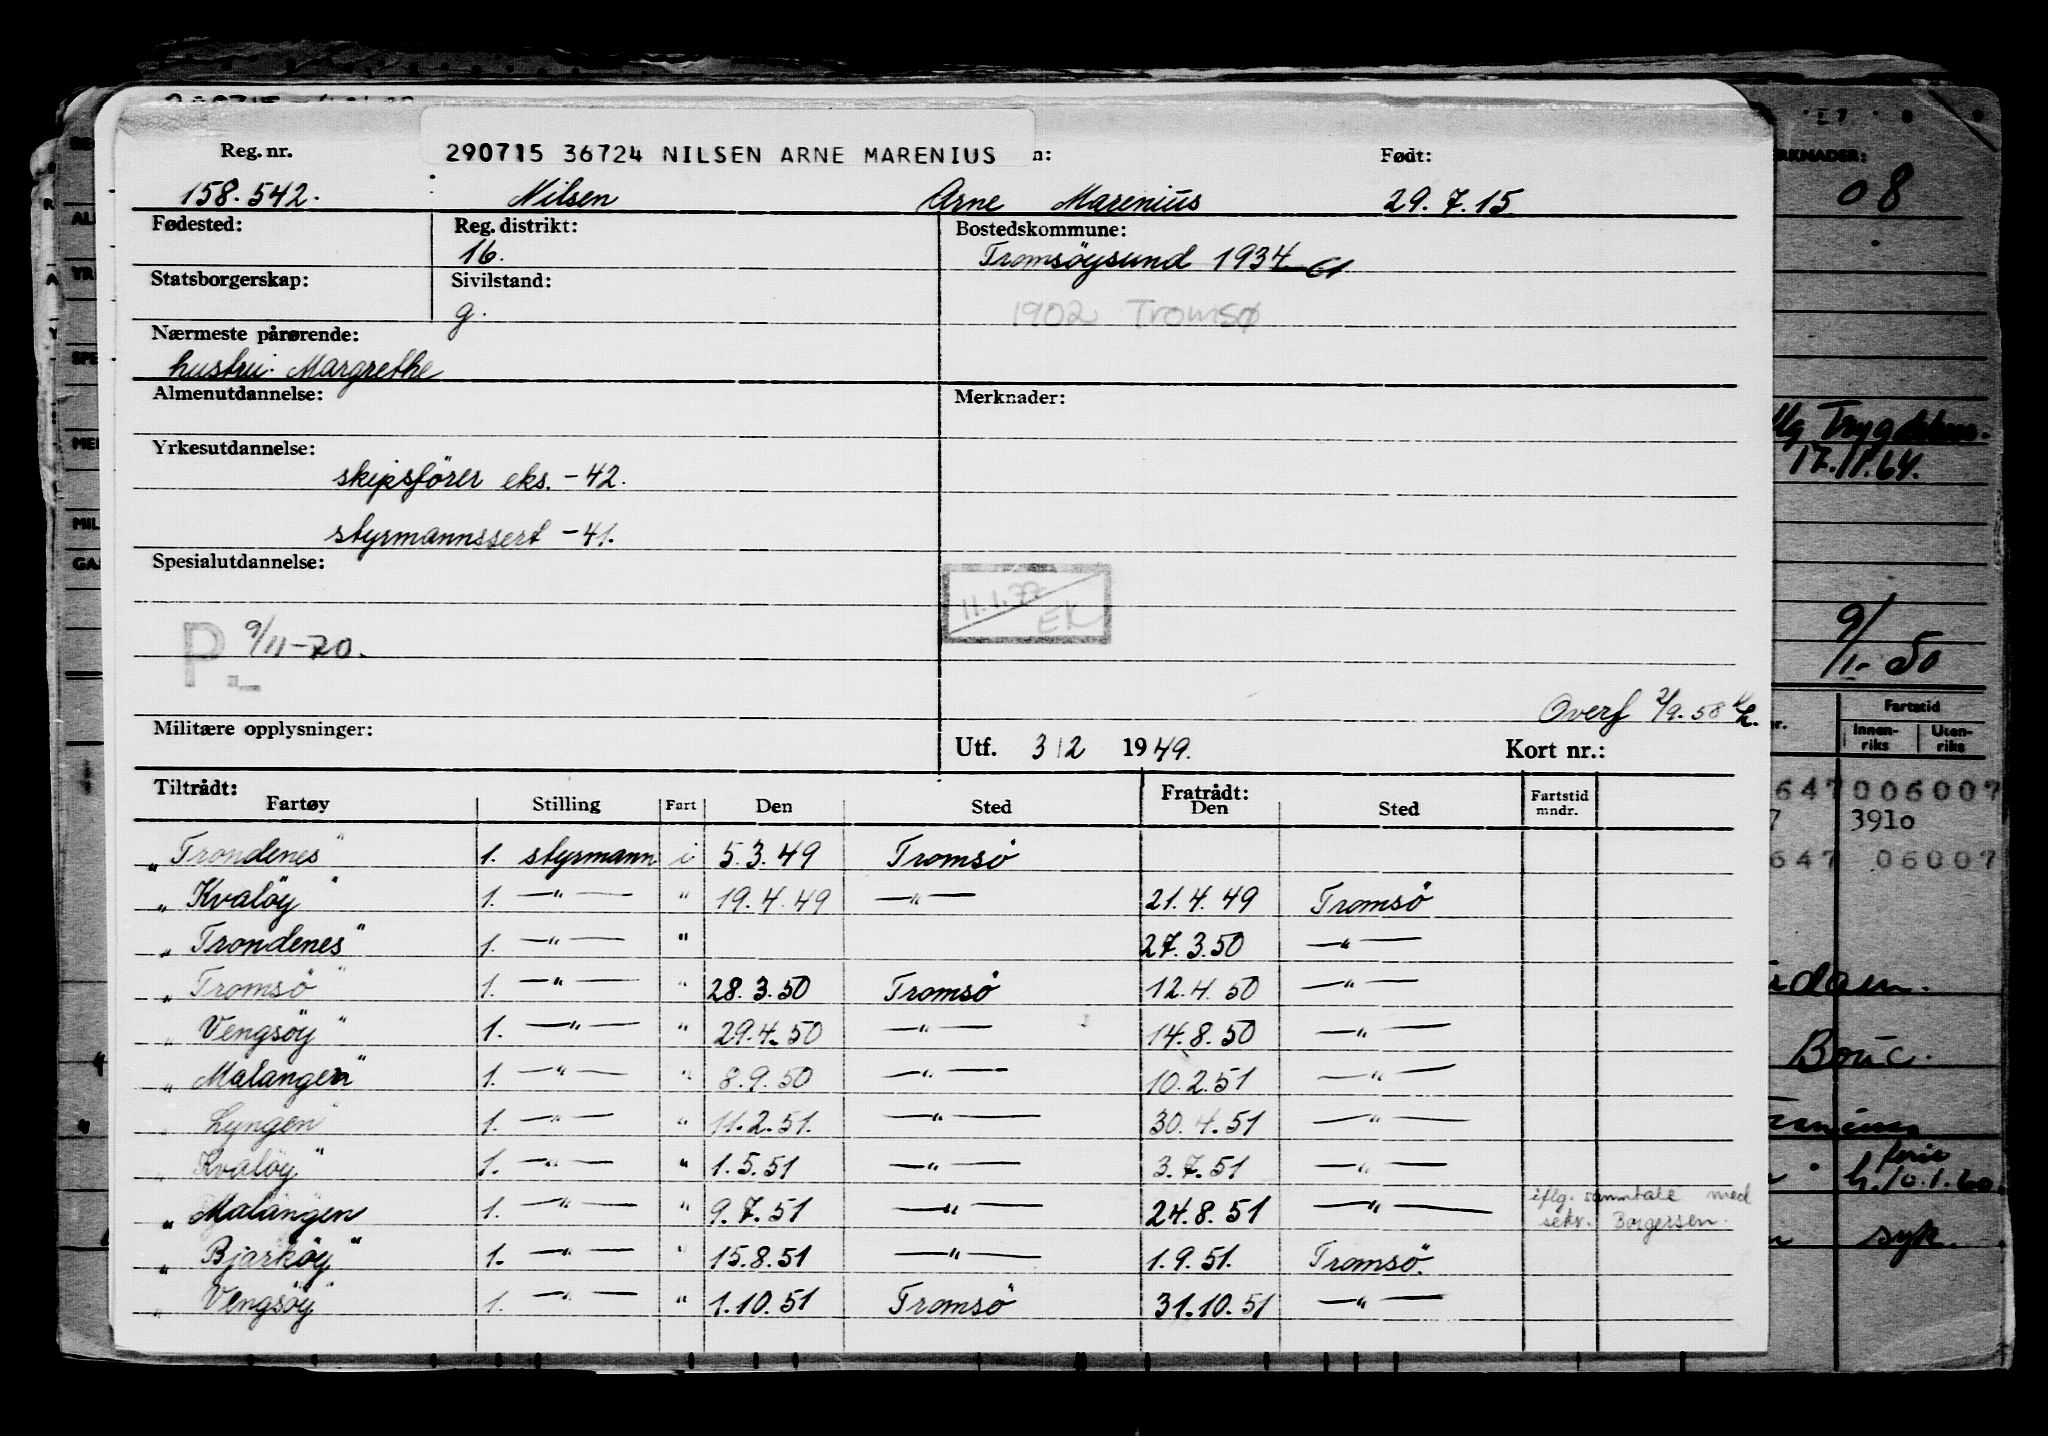 290715 36724 NILSEN ARNE MARENIUS n:
Reg. nr. Født:
158.542. Nilsen Arne Marenius 29.7.15
Fødested: Reg. distrikt: Bostedskommune:
16. Tromsöysund 1934
Statsborgerskap: Sivilstand:
g. 1902 Tromsø
Nærmeste pårørende:
hustru. Margrethe
Almenutdannelse: Merknader:
Yrkesutdannelse:
skipsförer eks. -42.
styrmannssert -41.
Spesialutdannelse:
11.1.77 EK
P. 9/11-70.
Overf 2/9.58
Militære opplysninger: Utf. 3/2 1949. Kort nr.:
Tiltrådt: Fratrådt:
Fartøy Stilling Fart Den Sted Den Sted Fartstid mndr.
"Trondenes" 1. styrmann i 5.3.49 Tromsö
"Kvalöy" 1. —"— " 19.4.49 —"— 21.4.49 Tromsö
"Trondenes" 1. —"— " 27.3.50 —"—
"Tromsö" 1. —"— " 28.3.50 Tromsö 12.4.50 —"—
"Vengsöy" 1. —"— " 29.4.50 —"— 14.8.50 —"—
"Malangen" 1. —"— " 8.9.50 —"— 10.2.51 —"—
"Lyngen" 1. —"— " 11.2.51. —"— 30.4.51 —"—
"Kvalöy" 1. —"— " 1.5.51 —"— 3.7.51 —"—
"Malangen 1. —"— " 9.7.51 —"— 24.8.51 —"— iflg. samtale med
sekr. Borgersen.
"Bjarköy" 1. —"— " 15.8.51 —"— 1.9.51. Tromsö.
"Vengsöy" 1. —"— " 1.10.51 Tromsö 31.10.51 —"—
RKNADER:
08
17.11.64.
9/1-50
Fartstid
nr. Innen-riks Uten-riks
647 006007
7 3910
647 06007
Bouc.
ferie
h. 10.1.60.
syk.